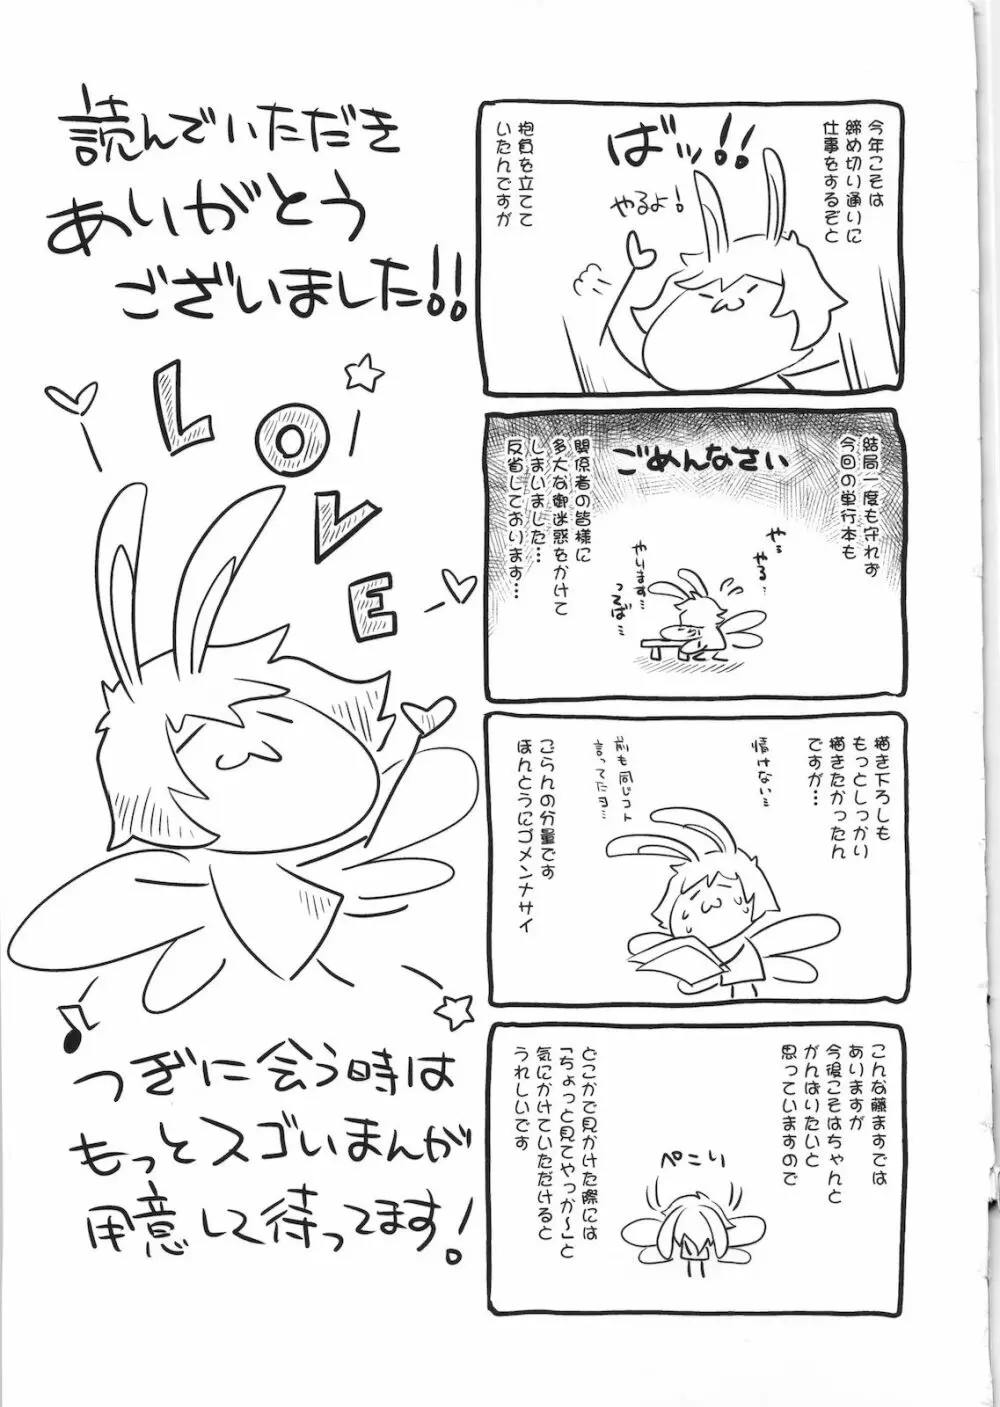 今年こそは
締め切り通りに
仕事をするぞと
ばッ!!
やるよ!
抱負を立てて
いたんですが
結局一度も守れず
今回の単行本も
ごめんなさい
関係者の皆様に
多大な御迷惑をかけて
しまいました…
反省しております…
や…
やる…
やります…
描き下ろしも
もっとしっかり
描きたかったん
ですが…
情けない…
前も同じコト
言ってたヨ…
ごらんの分量です
ほんとうにゴメンナサイ
こんな藤ますでは
ありますが
今後こそはちゃんと
がんばりたいと
思っていますので
ぺこり
どこかで見かけた際には
「ちょっと見てやっか～」と
気にかけていただけると
うれしいです
読んでいただき
ありがとう
ございました!!
LOVE
つぎに会う時は
もっとスゴいまんが
用意して待ってます!